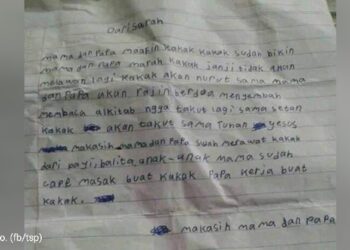 Dari sarah
mama dan Papa maafin kakak kakak sudah bikin
mama dan Papa marah kakak janji tidak akan
melawan lagi kakak akan nurut sama mama
dan PaPa akan rajin berdoa menyembah
membaca alkitab ngga takut lagi sama setan
kakak akan takut sama Tuhan yesos
makasih mama dan papa suda merawat kakak
dari bayi, balita, anak-anak mama sudah
cape masak buat kakak Papa kerja buat
kakak.
makasih mama dan PaPa
o. (fb/tsp)